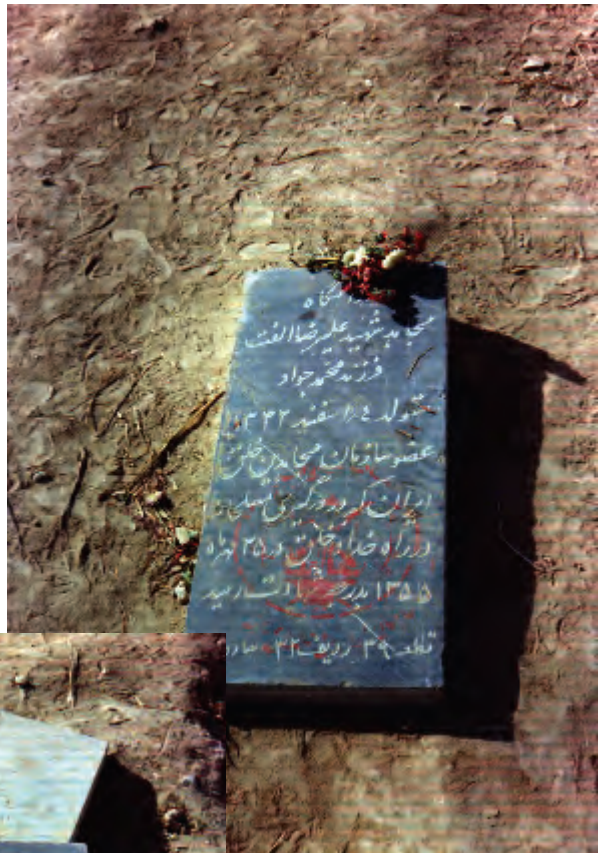 مجاهد شهید علیرضا الفت
فرزند محمد جواد
متولد اسفند ۱۳۳۲
عضو سازمان مجاهدین خلق
ایران که در درگیری مسلحانه
در راه خدا و خلق در ۲۵ مهرماه
۱۳۵۵ بدرجه
قطعه ۳۹ ردیف ۳۲